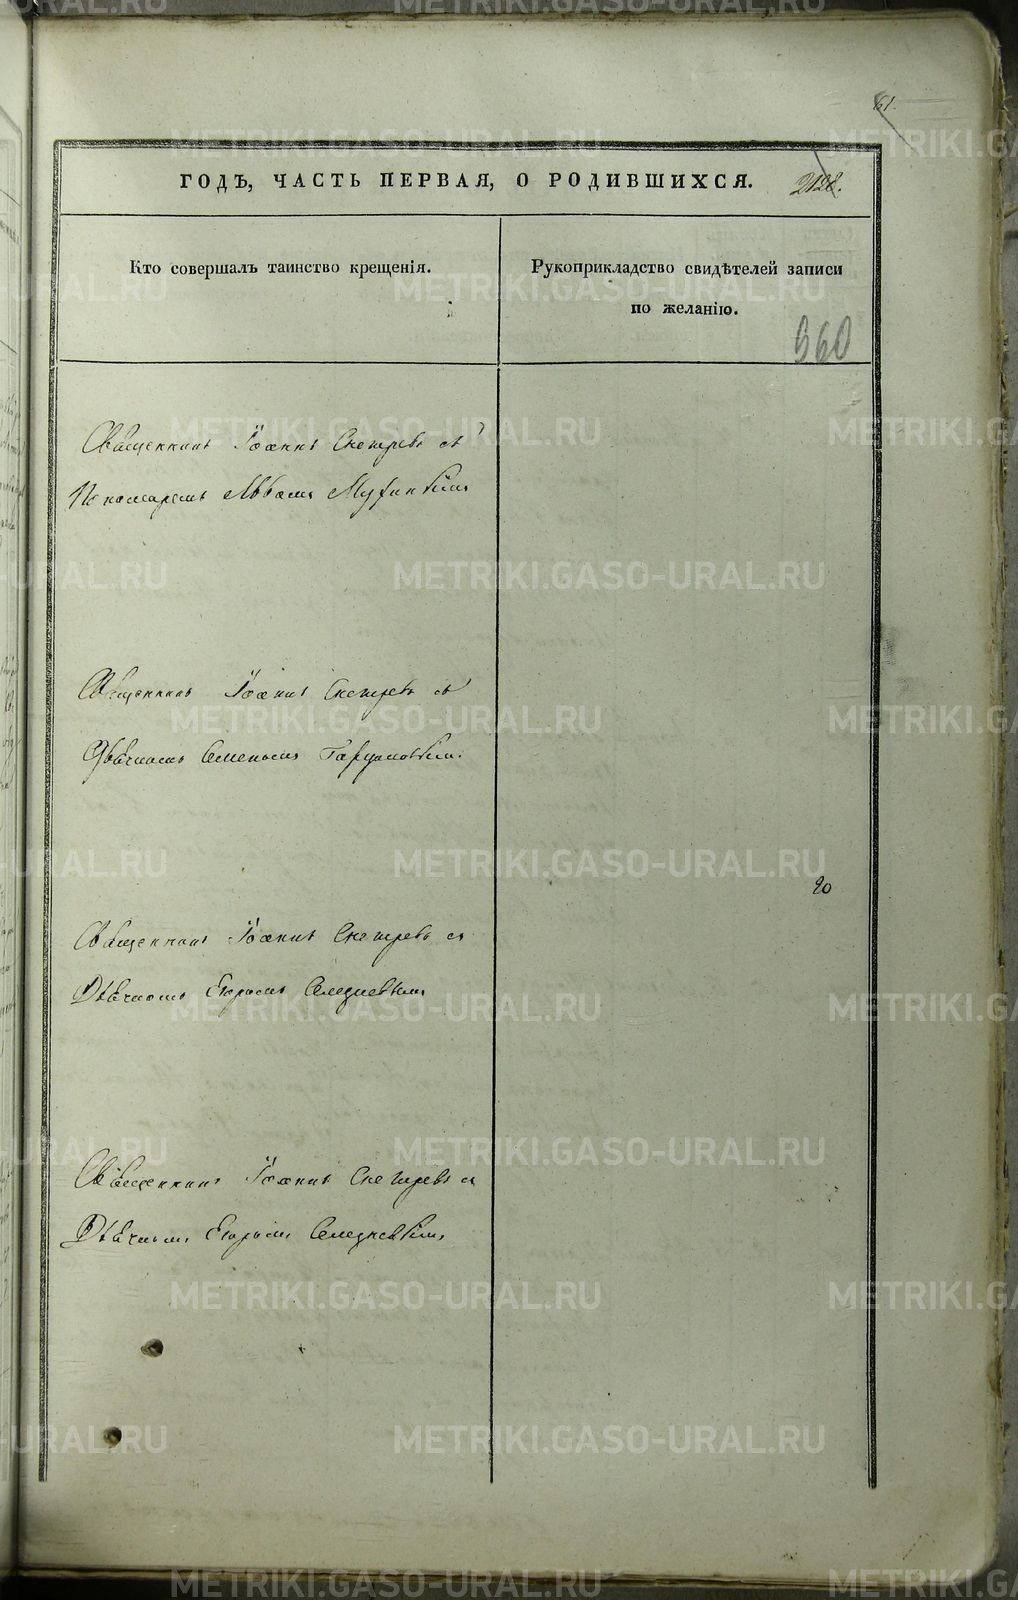 61.
ГОДЪ, ЧАСТЬ ПЕРВАЯ, О РОДИВШИХСЯ.
2128.
Кто совершалъ таинство крещенія.
Рукоприкладство свидѣтелей записи
по желанію.
360
Священникъ Іоаннъ Снегиревъ съ
Пономаремъ Аввамъ
Священникъ Іоаннъ Снегиревъ съ
Дьячкомъ Семеномъ
20
Священникъ Іоаннъ Снегиревъ съ
Дьячкомъ Егоромъ Селезневымъ
Священникъ Іоаннъ Снегиревъ съ
Дьячкомъ Егоромъ Селезневымъ
METRIKI.GASO-URAL.RU